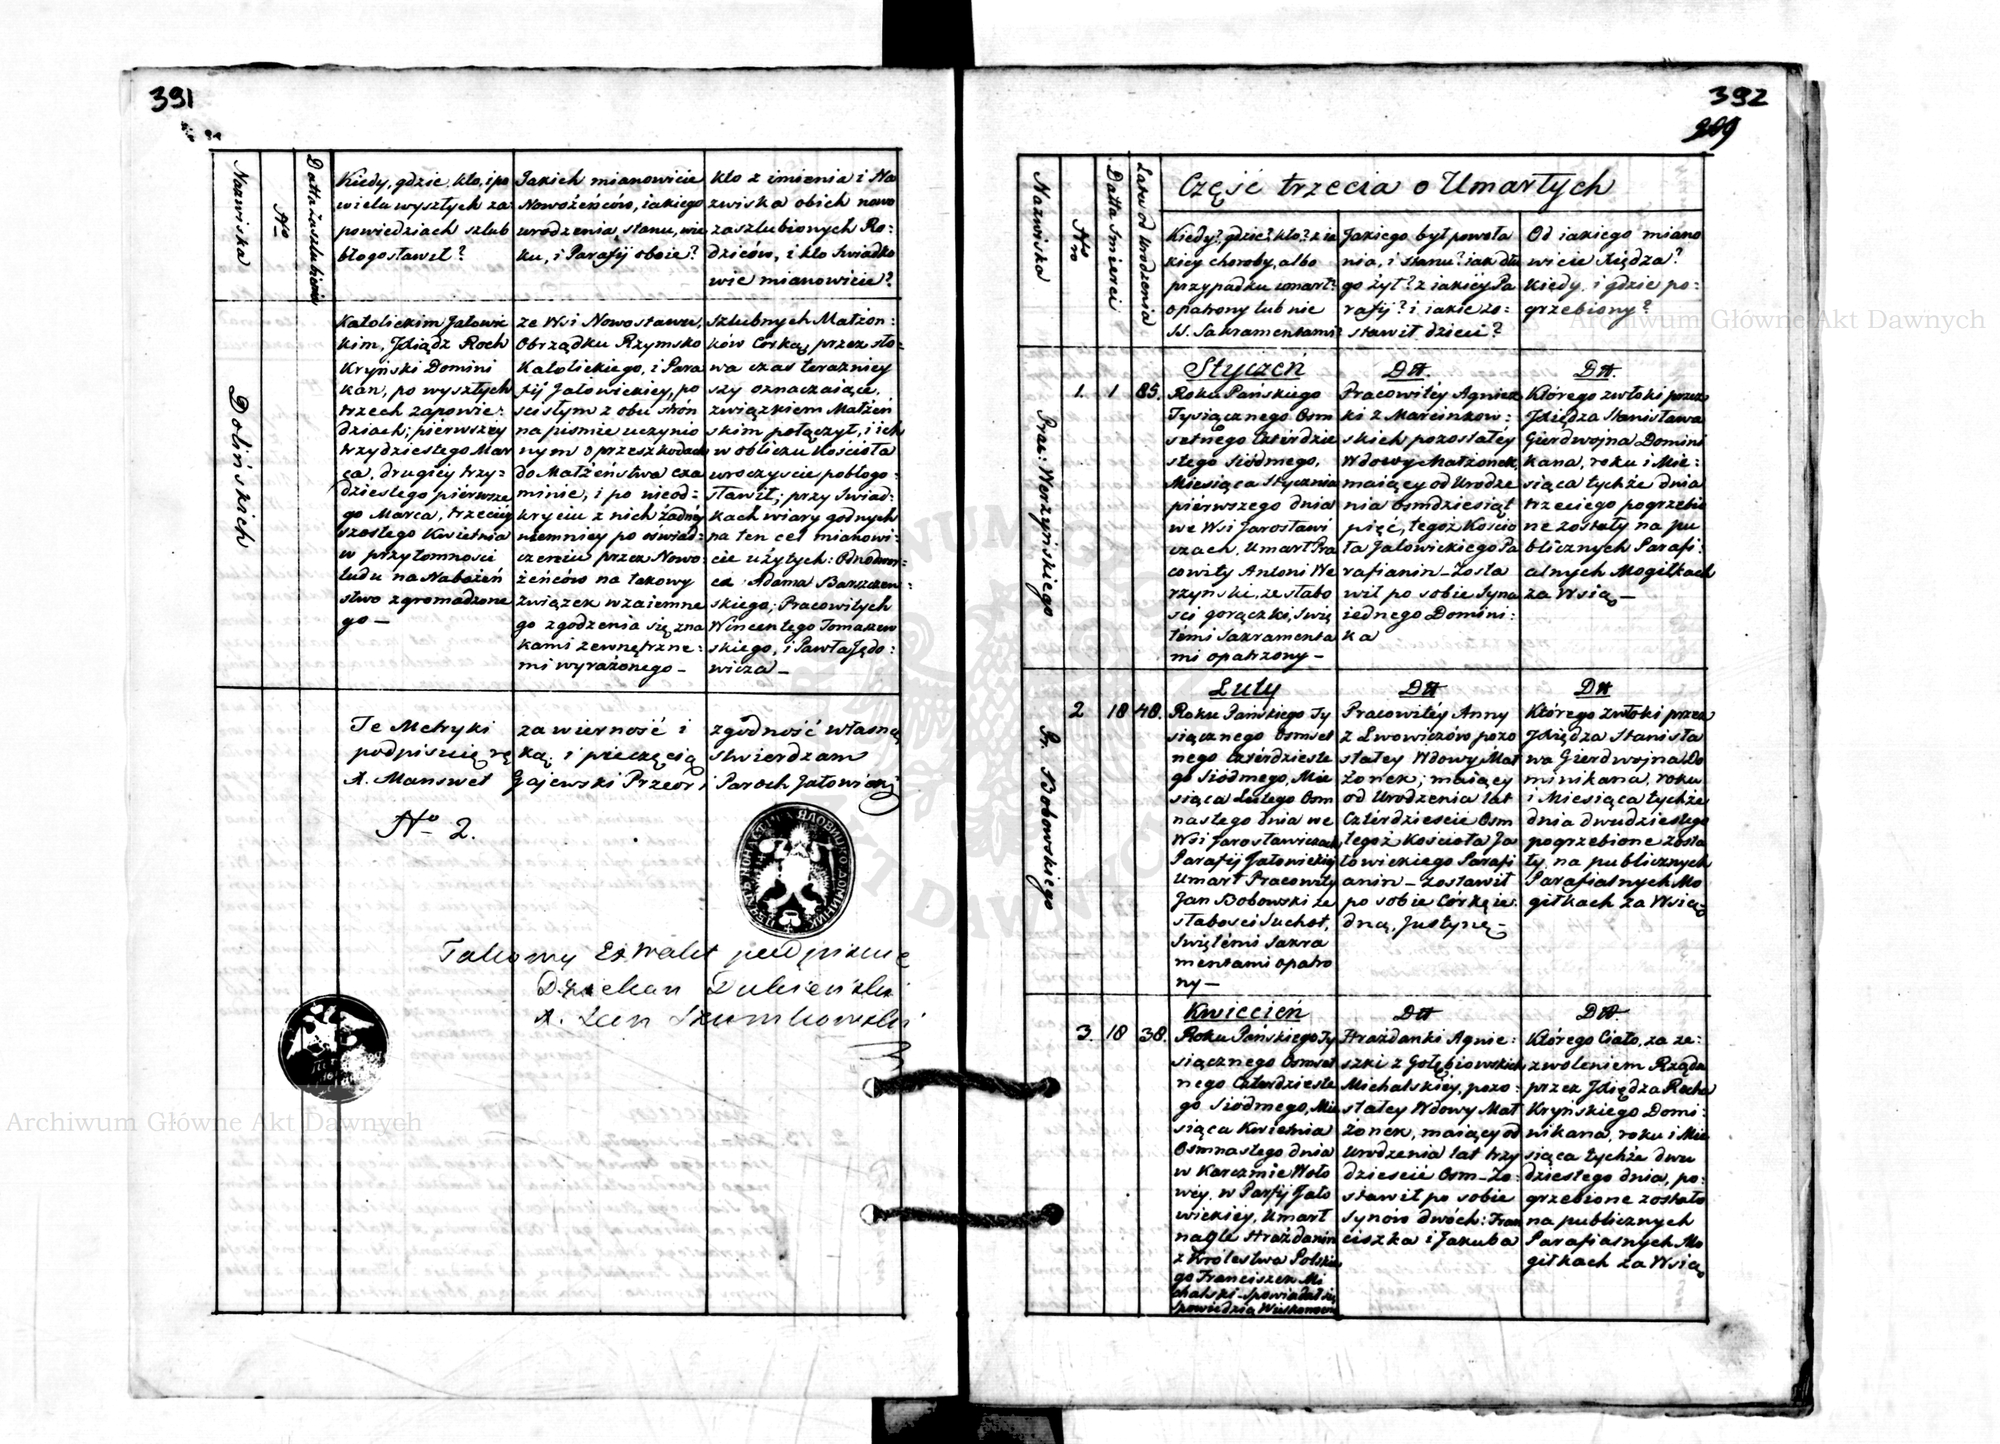 391
Nazwiska
No
Datta Zaszlubienia
Kiedy, gdzie, kto, i po
wielu wyszłych za
powiedziach szlub
błogosławił?
Jakich mianowicie
Nowożeńców, iakiego
urodzenia, stanu, wie
ku, i Parafij oboie?
kto z imienia i Na
zwiska obich nowo
zaszlubionych Ro-
dziców, i kto świadko
wie mianowicie?
Dolińskich
Katolickim Jałowic
kim, Xsiądz Roch
Kryński Domini
kan, po wyszłych
trzech zapowie-
dziach; pierwszey
trzydziestego Mar
ca, drugiey trzy-
dziestego pierwsze
go Marca, trzeciey
szostego Kwietnia
w przytomności
ludu na Nabożeń
stwo zgromadzone
go —
ze Wsi Nowostawu,
Obrządku Rzymsko
Katolickiego, i Para
fij Jałowickiey, po
scisłym z obu strón
na pismie uczynio
nym o przeszkodach
do Małżeństwa exa
minie, i po nieod-
kryciu z nich żadney
niemniey po oswiad-
czeniu przez Nowo-
żeńców na takowy
związek wzaiemne
go zgodzenia się zna
kami zewnętrzne-
mi wyrażonego —
szlubnych Małżon-
ków Corką, przez sło-
wa czas terazniey
szy oznaczaiące,
związkiem Małżeń
skim połączył, i ich
w obliczu Kościoła
uroczyscie pobłogo-
sławił; przy świad-
kach wiary godnych
na ten cel mianowi-
cie użytych: Odnodwor-
ca Adama Barszczew-
skiego; Pracowitych
Wincentego Tomaszew
skiego, i Pawła Jędo-
wicza —
Te Metryki za wierność i zgodność własną
podpisuię rę ką, i pieczęcią stwierdzam
X. Manswet Gajewski Przeor i Paroch Jałowicki
No 2.
Takowy Extrakt podpisuię
Dziekan Dubieński
X. Jan Szumkowski
392
209
Nazwiska
Nro
Datta Smierci
Lata od Urodzenia
Część trzecia o Umarłych
Kiedy? gdzie? kto? z ia
kiey choroby, albo
przypadku umarł?
opatrzony lub nie
SS. Sakramentami?
Jakiego był powoła
nia, i stanu? iak dłu
go żył? z iakiey Pa
rafij? i iakie zo-
stawił dzieci?
Od iakiego miano
wicie Xiędza?
kiedy, i gdzie po-
grzebiony?
Prac: Werzyńskiego
1.
1
85.
Styczeń
Roku Pańskiego
Tysiącznego Osm
setnego Czterdzie
stego Siódmego,
Miesiąca Stycznia
pierwszego dnia
we Wsi Jarosławi
czach, Umarł Pra
cowity Antoni We
rzyński, ze słabo
sci gorączki, Swię
temi Sakramenta
mi opatrzony —
Dtt.
Pracowitey Agniesz
ki z Marcinkow-
skich pozostałey
Wdowy Małżonek,
maiący od Urodze
nia osmdziesiąt
pięć, tegoż Kościo
ła Jałowickiego Pa
rafianin — Zosta
wił po sobie Syna
iednego Domini-
ka
Dtt.
Którego zwłoki przez
Xiędza Stanisława
Gierdwojna Domini
kana, roku i Mie-
siąca tychże dnia
trzeciego pogrzebio
ne zostały na pu
blicznych Parafi-
alnych Mogiłkach
za Wsią —
Pr. Bobowskiego
2
18
48.
Luty
Roku Pańskiego Ty
siącznego Osmset
nego Czterdzieste
go Siódmego, Mie
siąca Lutego Osm
nastego dnia we
Wsi Jarosławiczach
Parafij Jałowickiey
Umarł Pracowity
Jan Bobowski ze
słabosci Suchot,
Swiętemi Sakra
mentami opatrzo
ny —
Dtt
Pracowitey Anny
z Lwowiczów pozo
stałey Wdowy Mał
żonek; maiący
od Urodzenia lat
Czterdziescie Osm
tegoż Kościoła Ja
łowickiego Parafi
anin — zostawił
po sobie Córkę ie-
dną, Justynę —
Dtt
Którego Zwłoki przez
Xiędza Stanisła
wa Gierdwojna Do
minikana, roku
i Miesiąca tychże
dnia dwudziestego
pogrzebione zosta
ły, na publicznych
Parafialnych Mo
giłkach za Wsią —
3
18
38.
Kwiecień
Roku Pańskiego Ty
siącznego Osmset
nego Czterdzieste
go Siódmego, Mie
siąca Kwietnia
Osmnastego dnia
w Karczmie Woło
wey, w Parfij Jało
wickiey, Umarł
nagle Hrażdanin
z Królestwa Polskie
go Franciszek Mi
chalski — spowiadał się
Spowiedzią Wielkanocną
Dtt
Hrażdanki Agnie-
szki z Gołębiowskich
Michalskiey, pozo-
stałey Wdowy Mał
żonek, maiący od
Urodzenia lat trzy
dziescie Osm — Zo-
stawił po sobie
Synów dwóch: Fran
ciszka i Jakuba
Dtt.
Którego Ciało, za ze-
zwoleniem Rządu
przez Xiędza Rocha
Kryńskiego Domi-
nikana, roku i Mie
siąca tychże dwu
dziestego dnia, po-
grzebione zostało
na publicznych
Parafialnych Mo
giłkach za Wsią
Archiwum Główne Akt Dawnych
Archiwum Główne Akt Dawnych